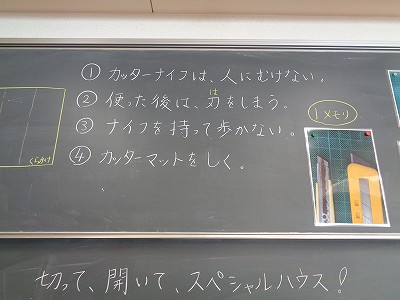 ① カッターナイフは、人にむけない。
② 使った後は、刃をしまう。
は
③ ナイフを持って歩かない。
④ カッターマットをしく。
1メモリ
切って、開いて、スペシャルハウス!